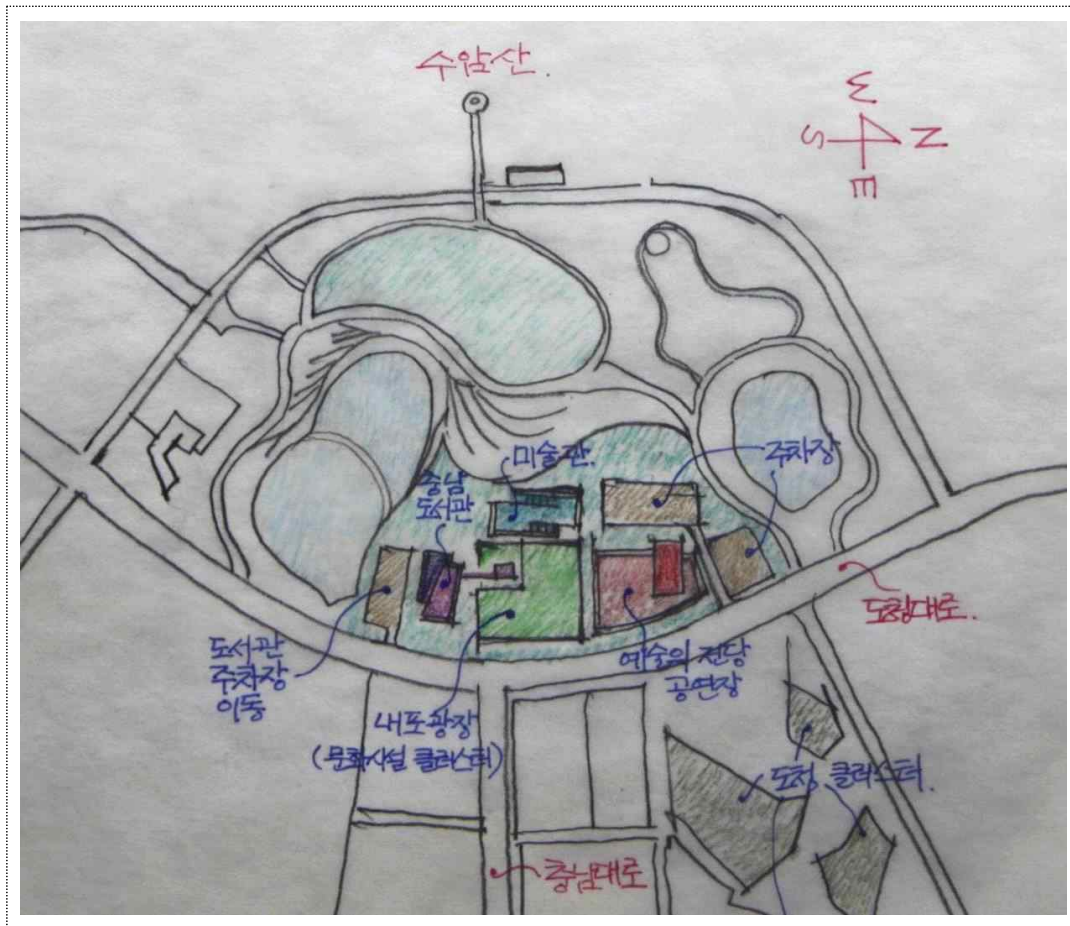 수암산.
W
S N
E
미술관.
주차장
충남
도서관
도청대로.
도서관
주차장
이동
예술의 전당
공연장
내포광장
(문화시설 클러스터)
도청 클러스터.
충남대로